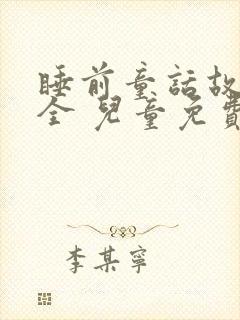 睡前童話故
全 兒童免費
李某寧